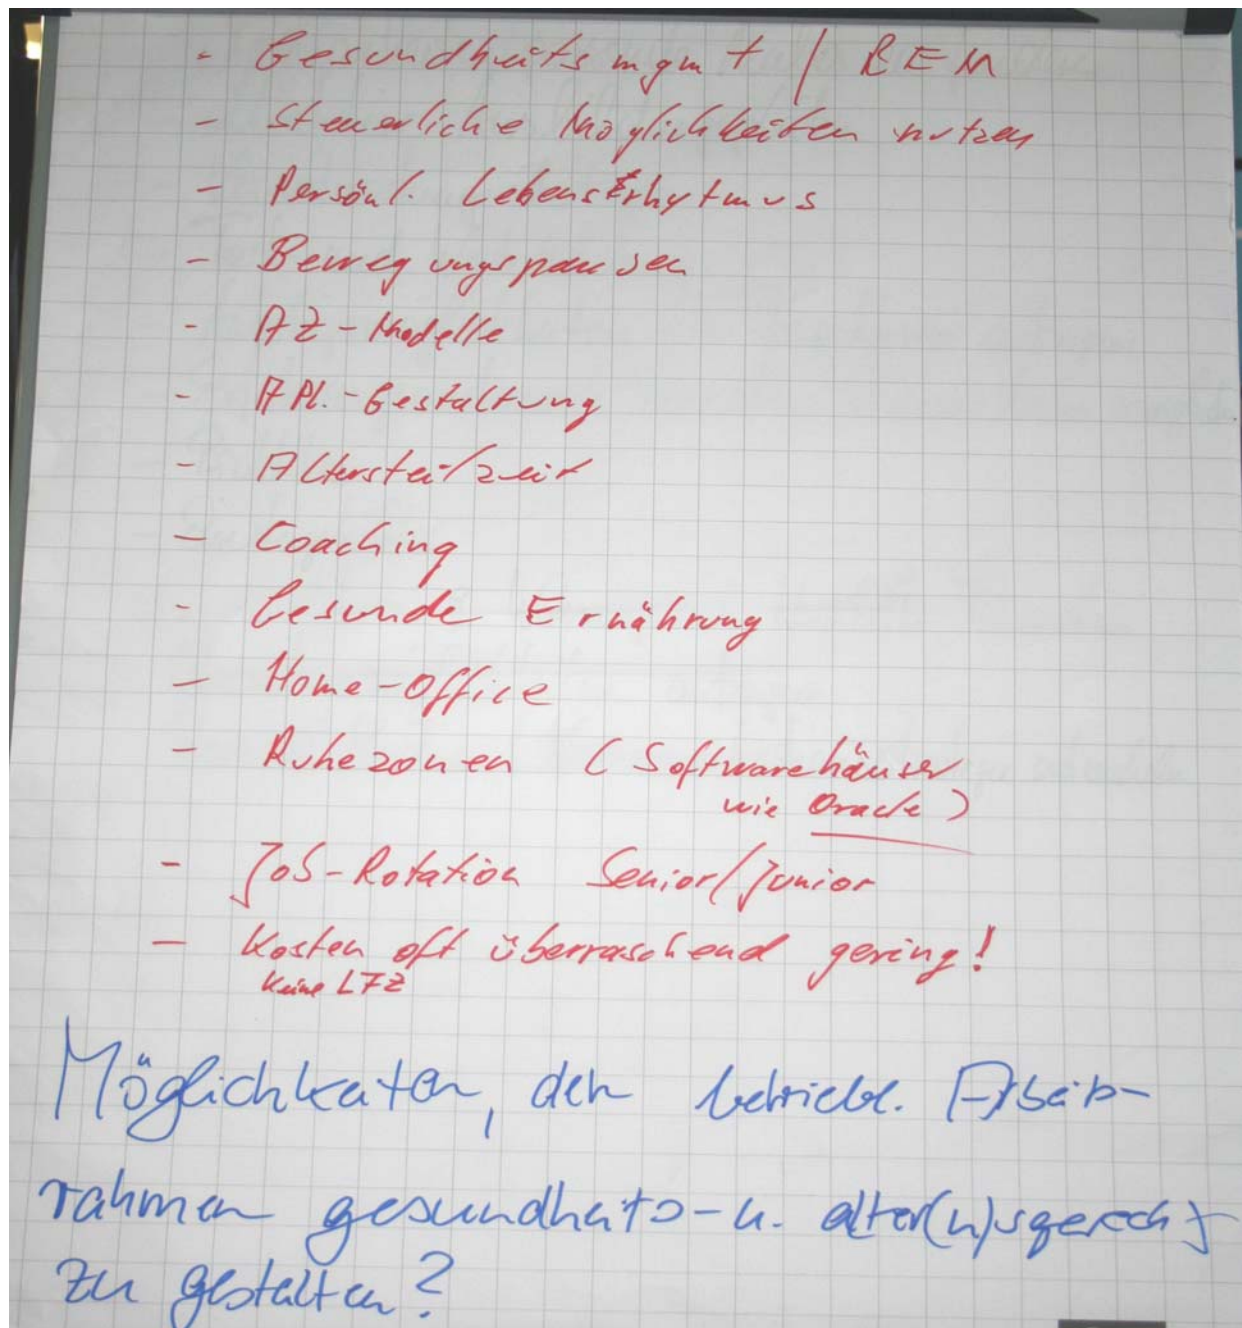 - Gesundheitsmgmt / BEM
- Steuerliche Möglichkeiten nutzen
- Persönl. Lebensrhytmus
- Bewegungspausen
- AZ-Modelle
- APl.-Gestaltung
- Altersteilzeit
- Coaching
- Gesunde Ernährung
- Home-Office
- Ruhezonen (Softwarehäuser
wie Oracle)
- Job-Rotation Senior/Junior
- Kosten oft überraschend gering!
keine LFZ
Möglichkeiten, den betriebl. Arbeits-
rahmen gesundheits- u. alter(n)sgerecht
zu gestalten?